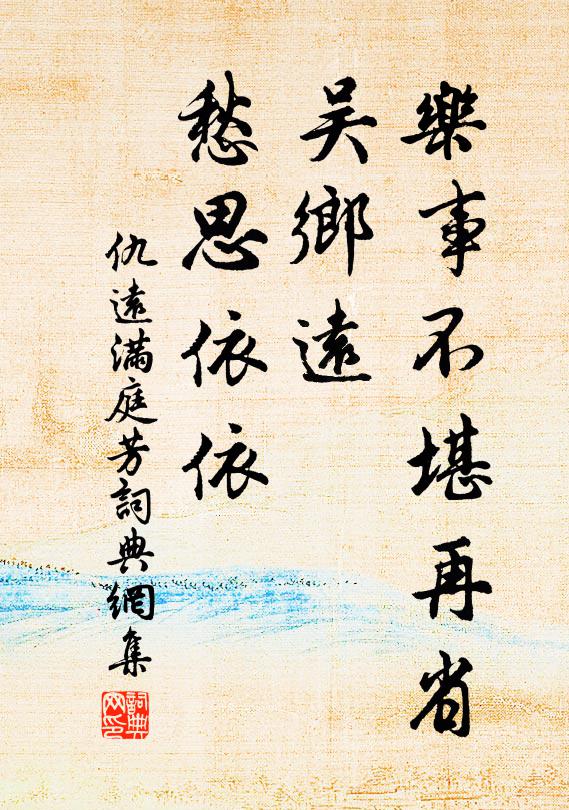 樂事不堪再省
吳鄉遠
愁思依依
仇遠滿庭芳詞典網集
詞典網印